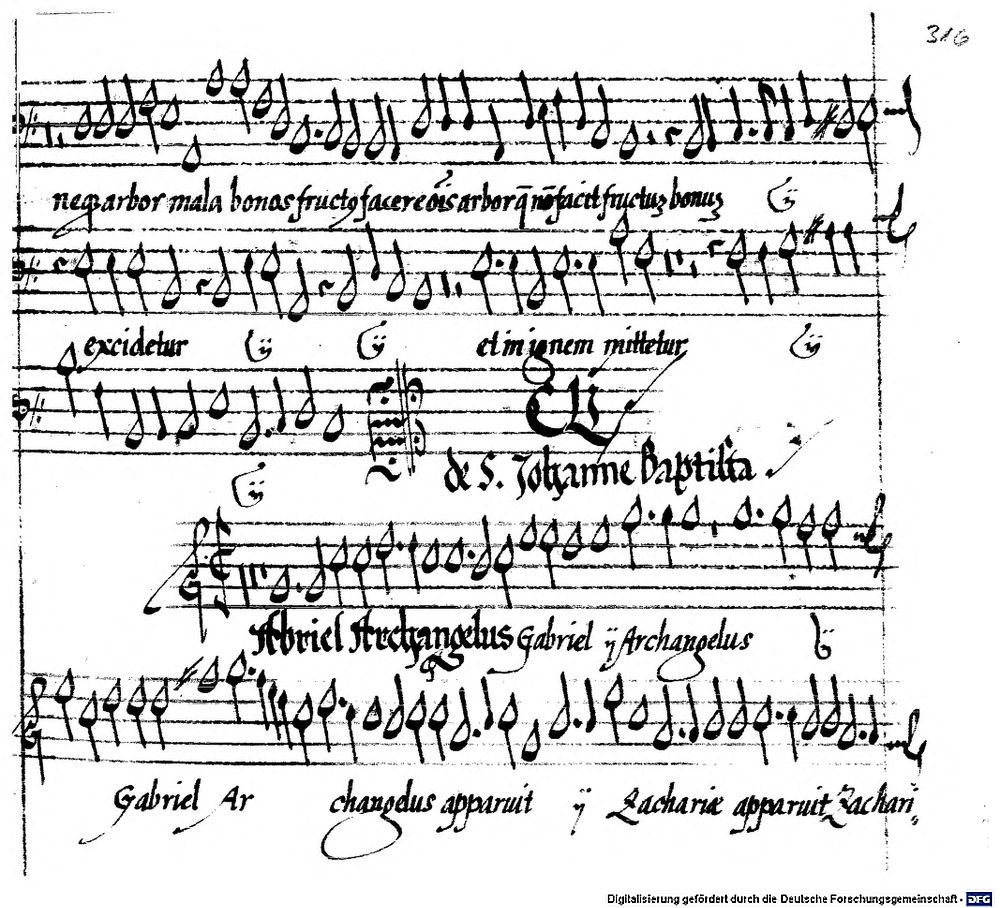 316
neq arbor mala bonos fructꝯ facere oi͞s arbor q̄ nō facit fructuꝫ bonuꝫ ij
excidetur ij ij et in ignem mittetur ij
ij
de S. Johanne Baptista
Abriel Archangelus Gabriel ij Archangelus ij
Gabriel Ar changelus apparuit ij Zachariæ apparuit Zachari
Digitalisierung gefördert durch die Deutsche Forschungsgemeinschaft - DFG